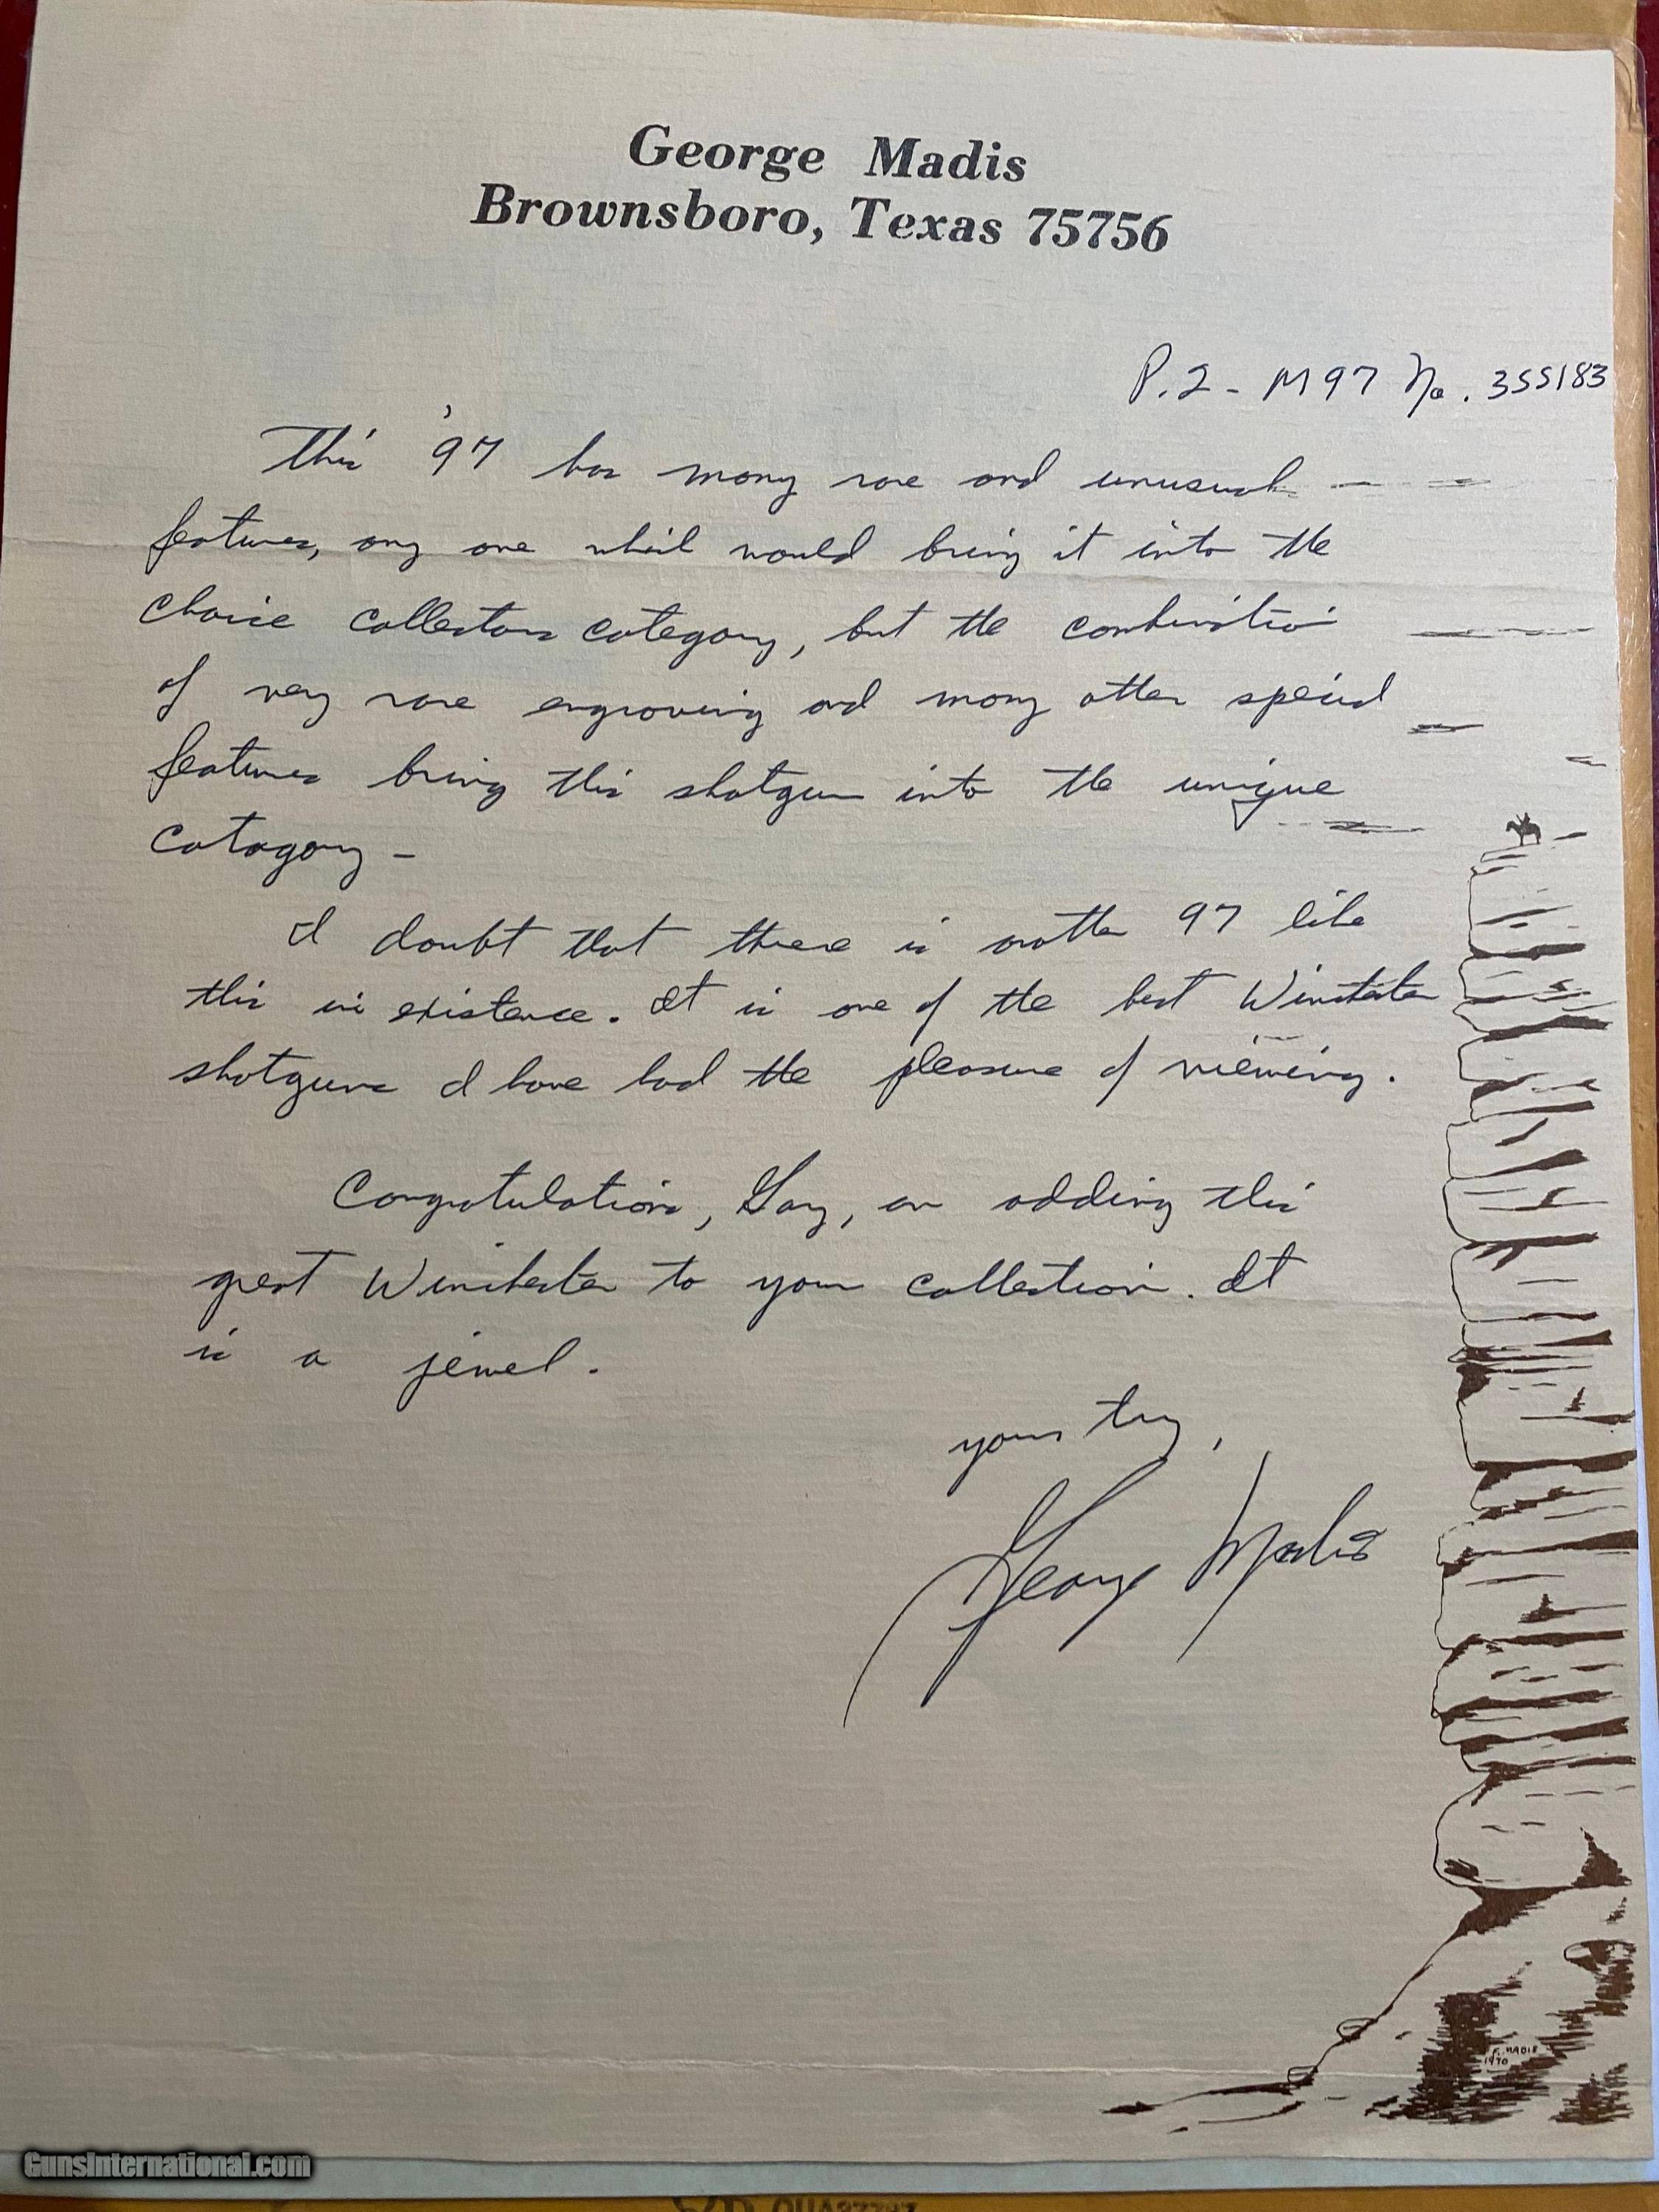 George Madis
Brownsboro, Texas 75756
P.2 - M97 No. 355183
This '97 has many rare and unusual
features, any one which would bring it into the
choice collectors category, but the combination
of very rare engraving and many other special
features bring this shotgun into the unique
catagory -
I doubt that there is another 97 like
this in existence. It is one of the best Winchester
shotguns I have had the pleasure of viewing.
Congratulations, Gary, on adding this
great Winchester to your collection. It
is a jewel.
yours truly,
George Madis
MADIS
1970
GunsInternational.com